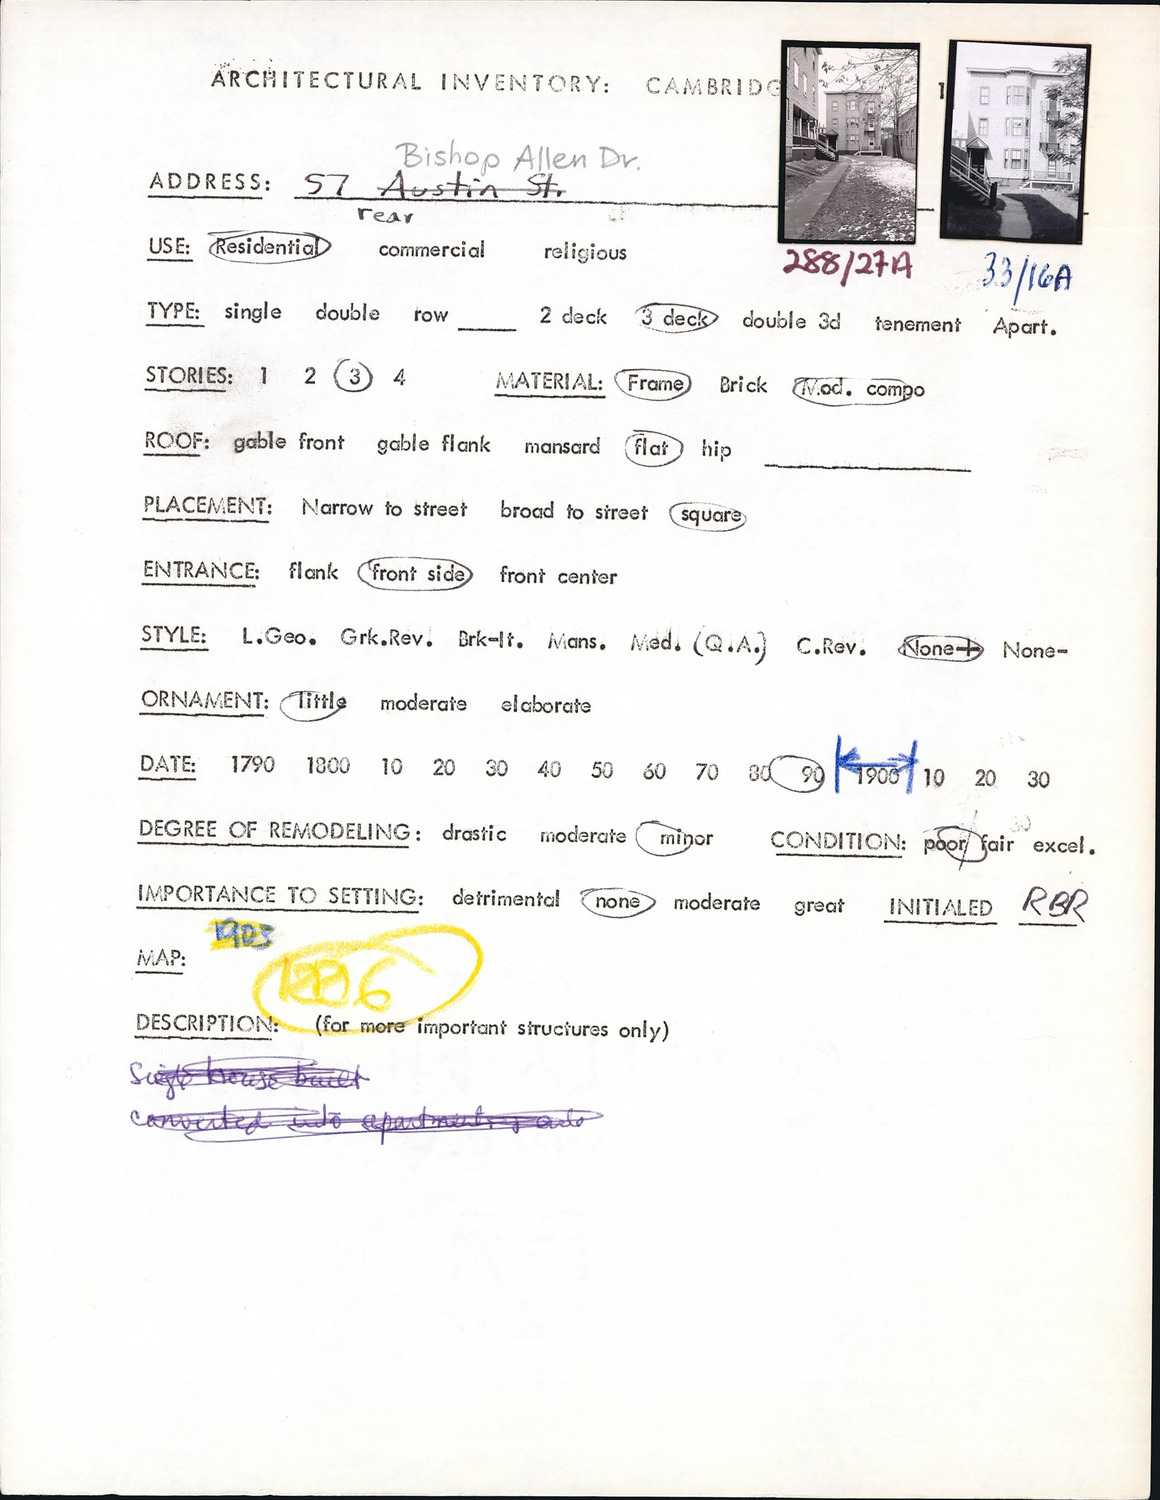 ARCHITECTURAL INVENTORY: CAMBRIDG
Bishop Allen Dr.
ADDRESS: 57 Austin St.
rear
288/27A 33/16A
USE: Residential commercial religious
TYPE: single double row ____ 2 deck 3 deck double 3d tenement Apart.
STORIES: 1 2 3 4 MATERIAL: Frame Brick Mod. compo
ROOF: gable front gable flank mansard flat hip
PLACEMENT: Narrow to street broad to street square
ENTRANCE: flank front side front center
STYLE: L.Geo. Grk.Rev. Brk-It. Mans. Med. (Q.A.) C.Rev. None+ None-
ORNAMENT: little moderate elaborate
DATE: 1790 1800 10 20 30 40 50 60 70 80 90 1900 10 20 30
DEGREE OF REMODELING: drastic moderate minor CONDITION: poor fair excel.
IMPORTANCE TO SETTING: detrimental none moderate great INITIALED RBR
1903
MAP:
DESCRIPTION: (for more important structures only)
house built
converted into apartments